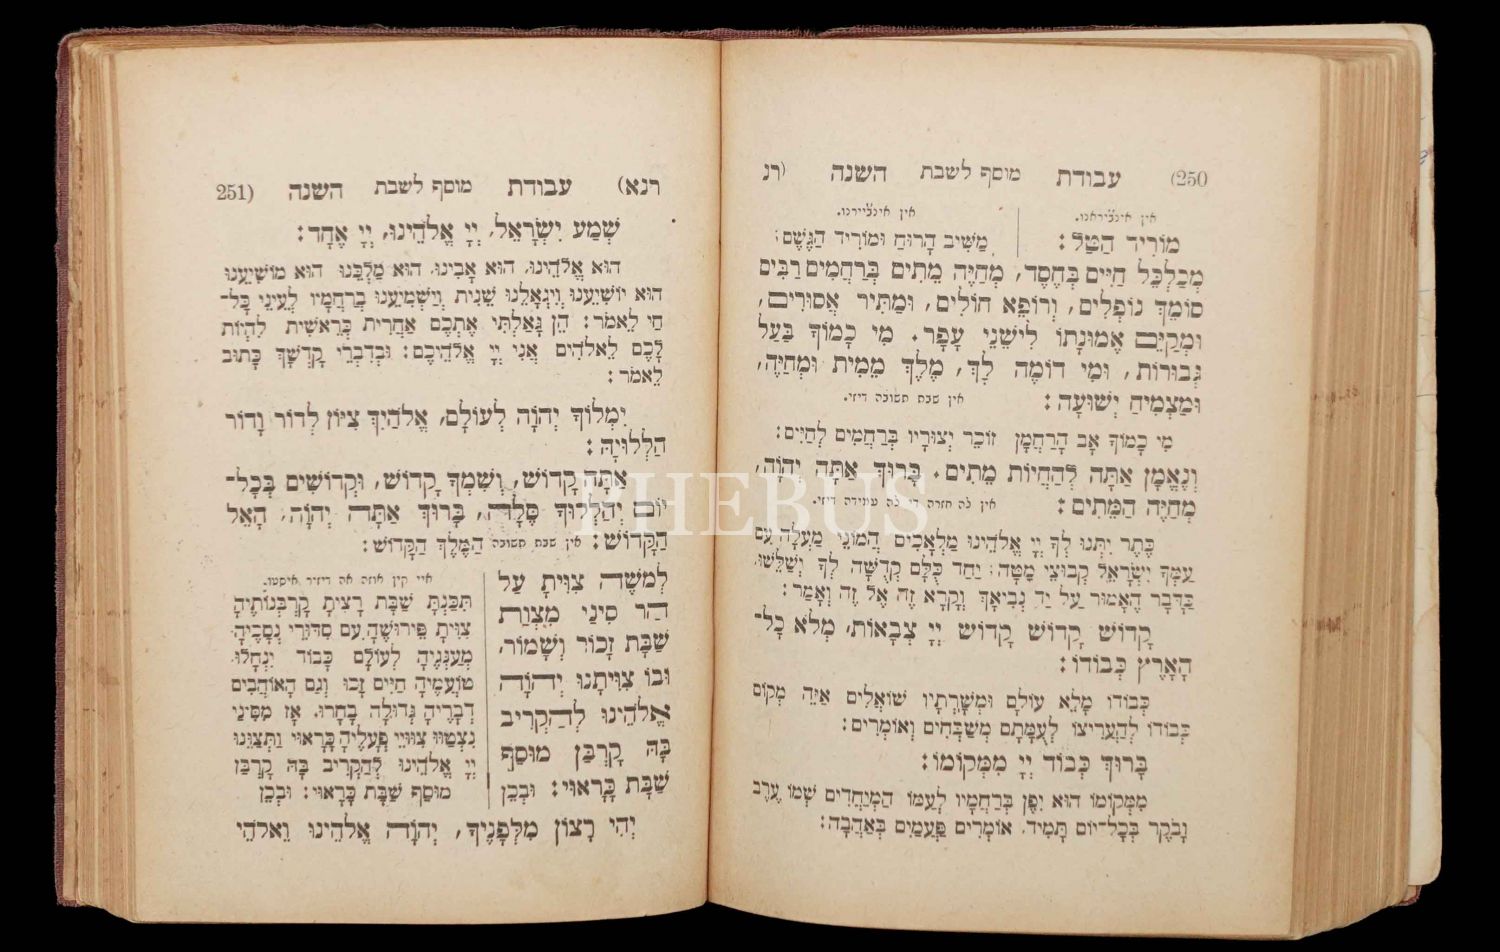 250) עבודת מוסף לשבת השנה (רנ
אין אינבֿייראנו. אין אינבֿיירנו.
מוֹרִיד הַטַּל: מַשִּׁיב הָרוּחַ וּמוֹרִיד הַגֶּשֶׁם:
מְכַלְכֵּל חַיִּים בְּחֶסֶד, מְחַיֵּה מֵתִים בְּרַחֲמִים רַבִּים
סוֹמֵךְ נוֹפְלִים, וְרוֹפֵא חוֹלִים, וּמַתִּיר אֲסוּרִים,
וּמְקַיֵּם אֱמוּנָתוֹ לִישֵׁנֵי עָפָר. מִי כָמוֹךָ בַּעַל
גְּבוּרוֹת, וּמִי דוֹמֶה לָךְ, מֶלֶךְ מֵמִית וּמְחַיֶּה,
וּמַצְמִיחַ יְשׁוּעָה: אין שבת תשובה דיזי.
מִי כָמוֹךָ אָב הָרַחֲמָן זוֹכֵר יְצוּרָיו בְּרַחֲמִים לְחַיִּים:
וְנֶאֱמָן אַתָּה לְהַחֲיוֹת מֵתִים. בָּרוּךְ אַתָּה יְהֹוָה,
מְחַיֵּה הַמֵּתִים: אין לה חזרה די לה עמידה דיזי.
כֶּתֶר יִתְּנוּ לְךָ יְיָ אֱלֹהֵינוּ מַלְאָכִים הֲמוֹנֵי מַעְלָה עִם
עַמְּךָ יִשְׂרָאֵל קְבוּצֵי מַטָּה: יַחַד כֻּלָּם קְדֻשָּׁה לְךָ יְשַׁלֵּשׁוּ
כַּדָּבָר הָאָמוּר עַל יַד נְבִיאָךְ וְקָרָא זֶה אֶל זֶה וְאָמַר:
קָדוֹשׁ קָדוֹשׁ קָדוֹשׁ יְיָ צְבָאוֹת, מְלֹא כָל־
הָאָרֶץ כְּבוֹדוֹ:
כְּבוֹדוֹ מָלֵא עוֹלָם וּמְשָׁרְתָיו שׁוֹאֲלִים אַיֵּה מְקוֹם
כְּבוֹדוֹ לְהַעֲרִיצוֹ לְעֻמָּתָם מְשַׁבְּחִים וְאוֹמְרִים:
בָּרוּךְ כְּבוֹד יְיָ מִמְּקוֹמוֹ:
מִמְּקוֹמוֹ הוּא יִפֶן בְּרַחֲמָיו לְעַמּוֹ הַמְיַחֲדִים שְׁמוֹ עֶרֶב
וָבֹקֶר בְּכָל־יוֹם תָּמִיד. אוֹמְרִים פַּעֲמַיִם בְּאַהֲבָה:
רנא) עבודת מוסף לשבת השנה (251
שְׁמַע יִשְׂרָאֵל, יְיָ אֱלֹהֵינוּ, יְיָ אֶחָד:
הוּא אֱלֹהֵינוּ. הוּא אָבִינוּ. הוּא מַלְכֵּנוּ הוּא מוֹשִׁיעֵנוּ
הוּא יוֹשִׁיעֵנוּ וְיִגְאָלֵנוּ שֵׁנִית וְיַשְׁמִיעֵנוּ בְרַחֲמָיו לְעֵינֵי כָּל־
חַי לֵאמֹר: הֵן גָּאַלְתִּי אֶתְכֶם אַחֲרִית כְּרֵאשִׁית לִהְיוֹת
לָכֶם לֵאלֹהִים אֲנִי יְיָ אֱלֹהֵיכֶם: וּבְדִבְרֵי קָדְשְׁךָ כָּתוּב
לֵאמֹר:
יִמְלוֹךְ יְהֹוָה לְעוֹלָם, אֱלֹהַיִךְ צִיּוֹן לְדוֹר וָדוֹר
הַלְלוּיָהּ:
אַתָּה קָדוֹשׁ, וְשִׁמְךָ קָדוֹשׁ, וּקְדוֹשִׁים בְּכָל־
יוֹם יְהַלְלוּךָ סֶּלָה, בָּרוּךְ אַתָּה יְהֹוָה, הָאֵל
הַקָּדוֹשׁ: אין שבת תשובה הַמֶּלֶךְ הַקָּדוֹשׁ:
לְמֹשֶׁה צִוִּיתָ עַל
הַר סִינַי מִצְוַת
שַׁבָּת זָכוֹר וְשָׁמוֹר,
וּבוֹ צִוִּיתָנוּ יְהֹוָה
אֱלֹהֵינוּ לְהַקְרִיב
בָּהּ קָרְבַּן מוּסַף
שַׁבָּת כָּרָאוּי: וּבְכֵן
איי קין אוזה אה דיזיר איסטו.
תִּכַּנְתָּ שַׁבָּת רָצִיתָ קָרְבְּנוֹתֶיהָ
צִוִּיתָ פֵּירוּשֶׁהָ עִם סִדּוּרֵי נְסָכֶיהָ
מְעַנְּגֶיהָ לְעוֹלָם כָּבוֹד יִנְחָלוּ.
טוֹעֲמֶיהָ חַיִּים זָכוּ וְגַם הָאוֹהֲבִים
דְּבָרֶיהָ גְּדוּלָּה בָחָרוּ. אָז מִסִּינַי
נִצְטַוּוּ צִוּוּיֵי פְּעָלֶיהָ כָּרָאוּי וַתְּצַוֵּנוּ
יְיָ אֱלֹהֵינוּ לְהַקְרִיב בָּהּ קָרְבַּן
מוּסַף שַׁבָּת כָּרָאוּי: וּבְכֵן
יְהִי רָצוֹן מִלְּפָנֶיךָ, יְהֹוָה אֱלֹהֵינוּ וֵאלֹהֵי
PHEBUS